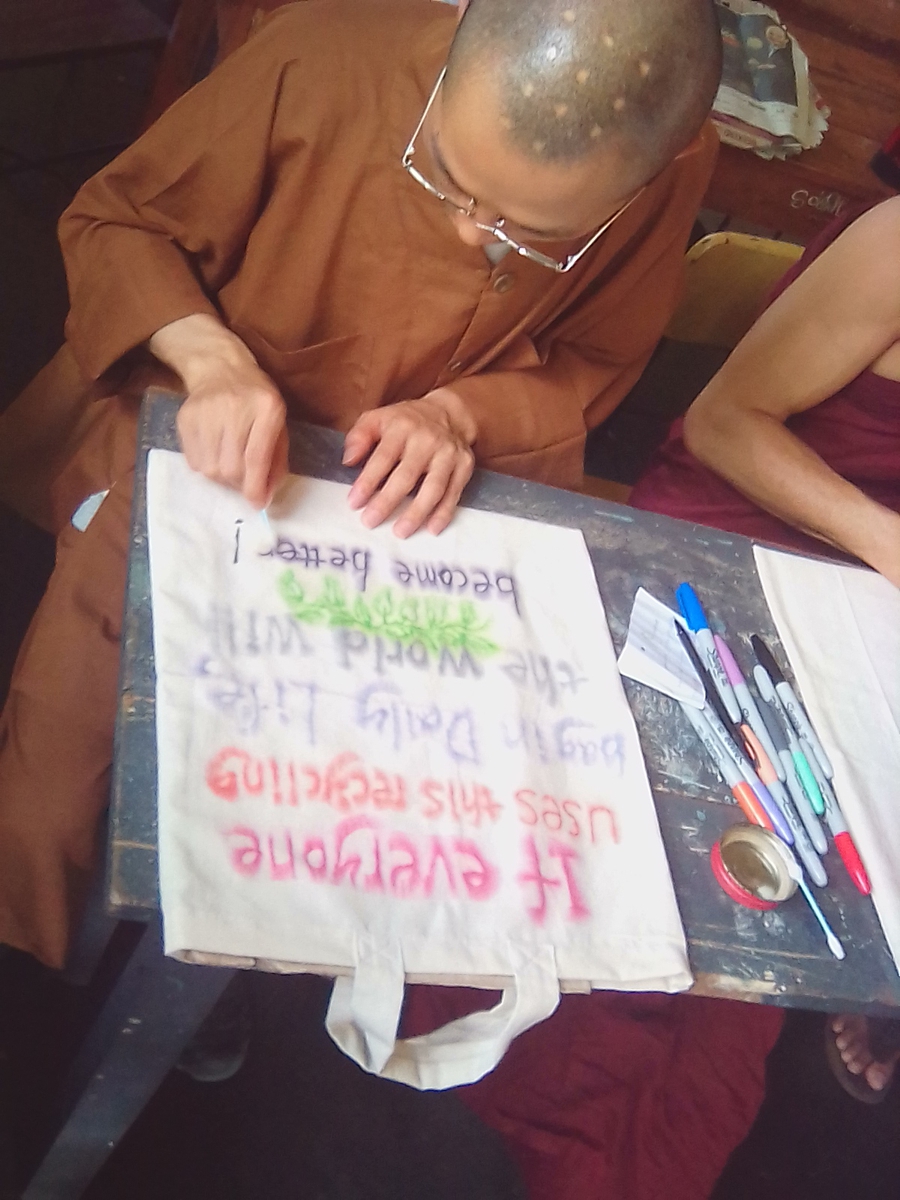 If everyone
uses this recycling
bag in Daily Life,
the world will
become better!